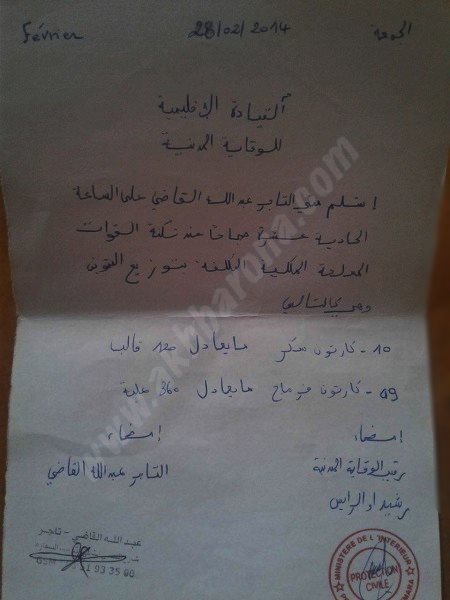 Février 28/02/2014 الجمعة
القيادة الإقليمية
للوقاية المدنية
إستلم مني التاجر عبد الله القاضي على الساعة
الحادية عشرة صباحا من ثكنة القوات
المسلحة الملكية المكلفة بتوزيع التموين
وهي كالتالي
10 - كارتون سكر مايعادل 120 قالبا
09 - كارتون مايعادل 360 علبة
إمضاء إمضاء
رقيب الوقاية المدنية التاجر عبد الله القاضي
رشيد
عبد الله القاضي - تاجر
GSM 61 93 35 00
MINISTERE DE L'INTERIEUR
PROTECTION
CIVILE
www.akhbarona.com